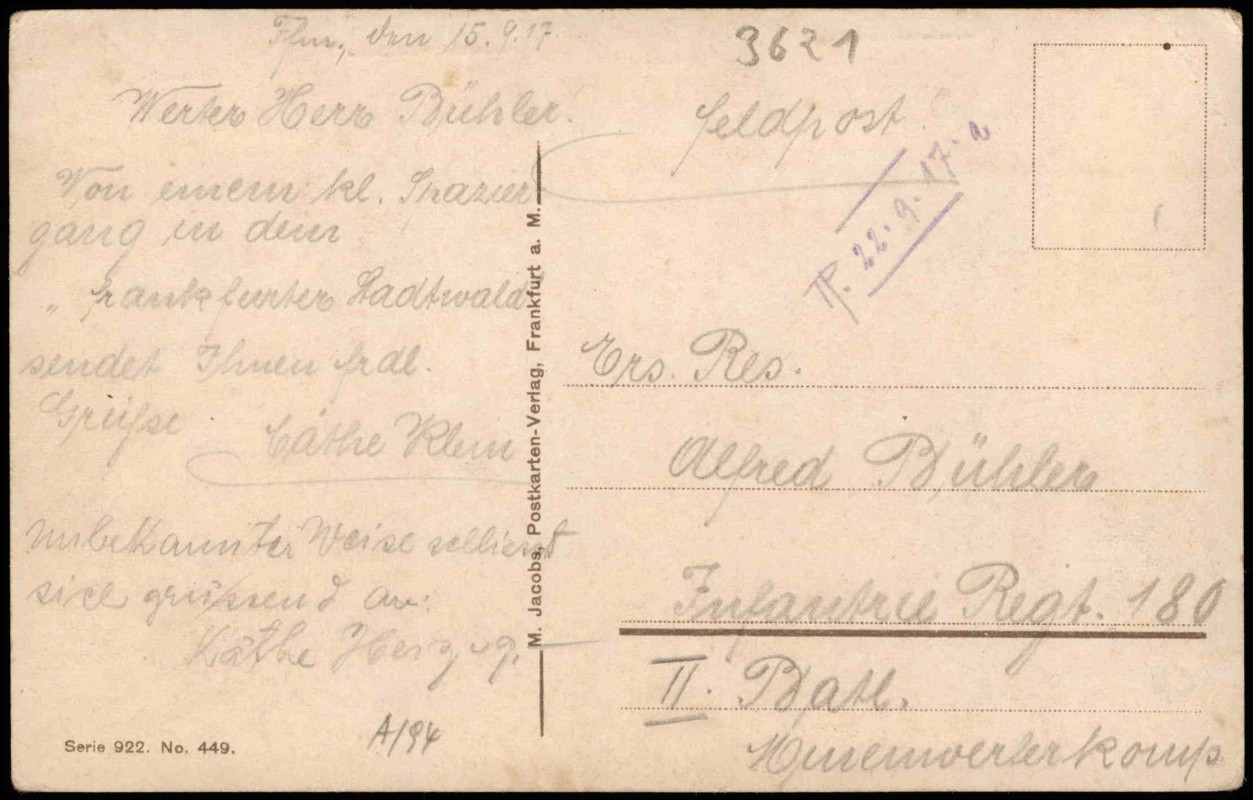 Ffm., den 15.9.17.
Werter Herr Bühler.
Von einem kl. Spazier
gang in dem
„ Frankfurter Stadtwald
sendet Ihnen frdl.
Grüße
Käthe Klein
Unbekannter Weise schließt
sich grüssend an:
Käthe Herzog.
A/94
Serie 922. No. 449.
M. Jacobs, Postkarten-Verlag, Frankfurt a. M.
3621
Feldpost
P. 22.9.17.a
Ers. Res.
Alfred Bühler
Infantrie Regt. 180
II. Batl.
Minenwerferkomp